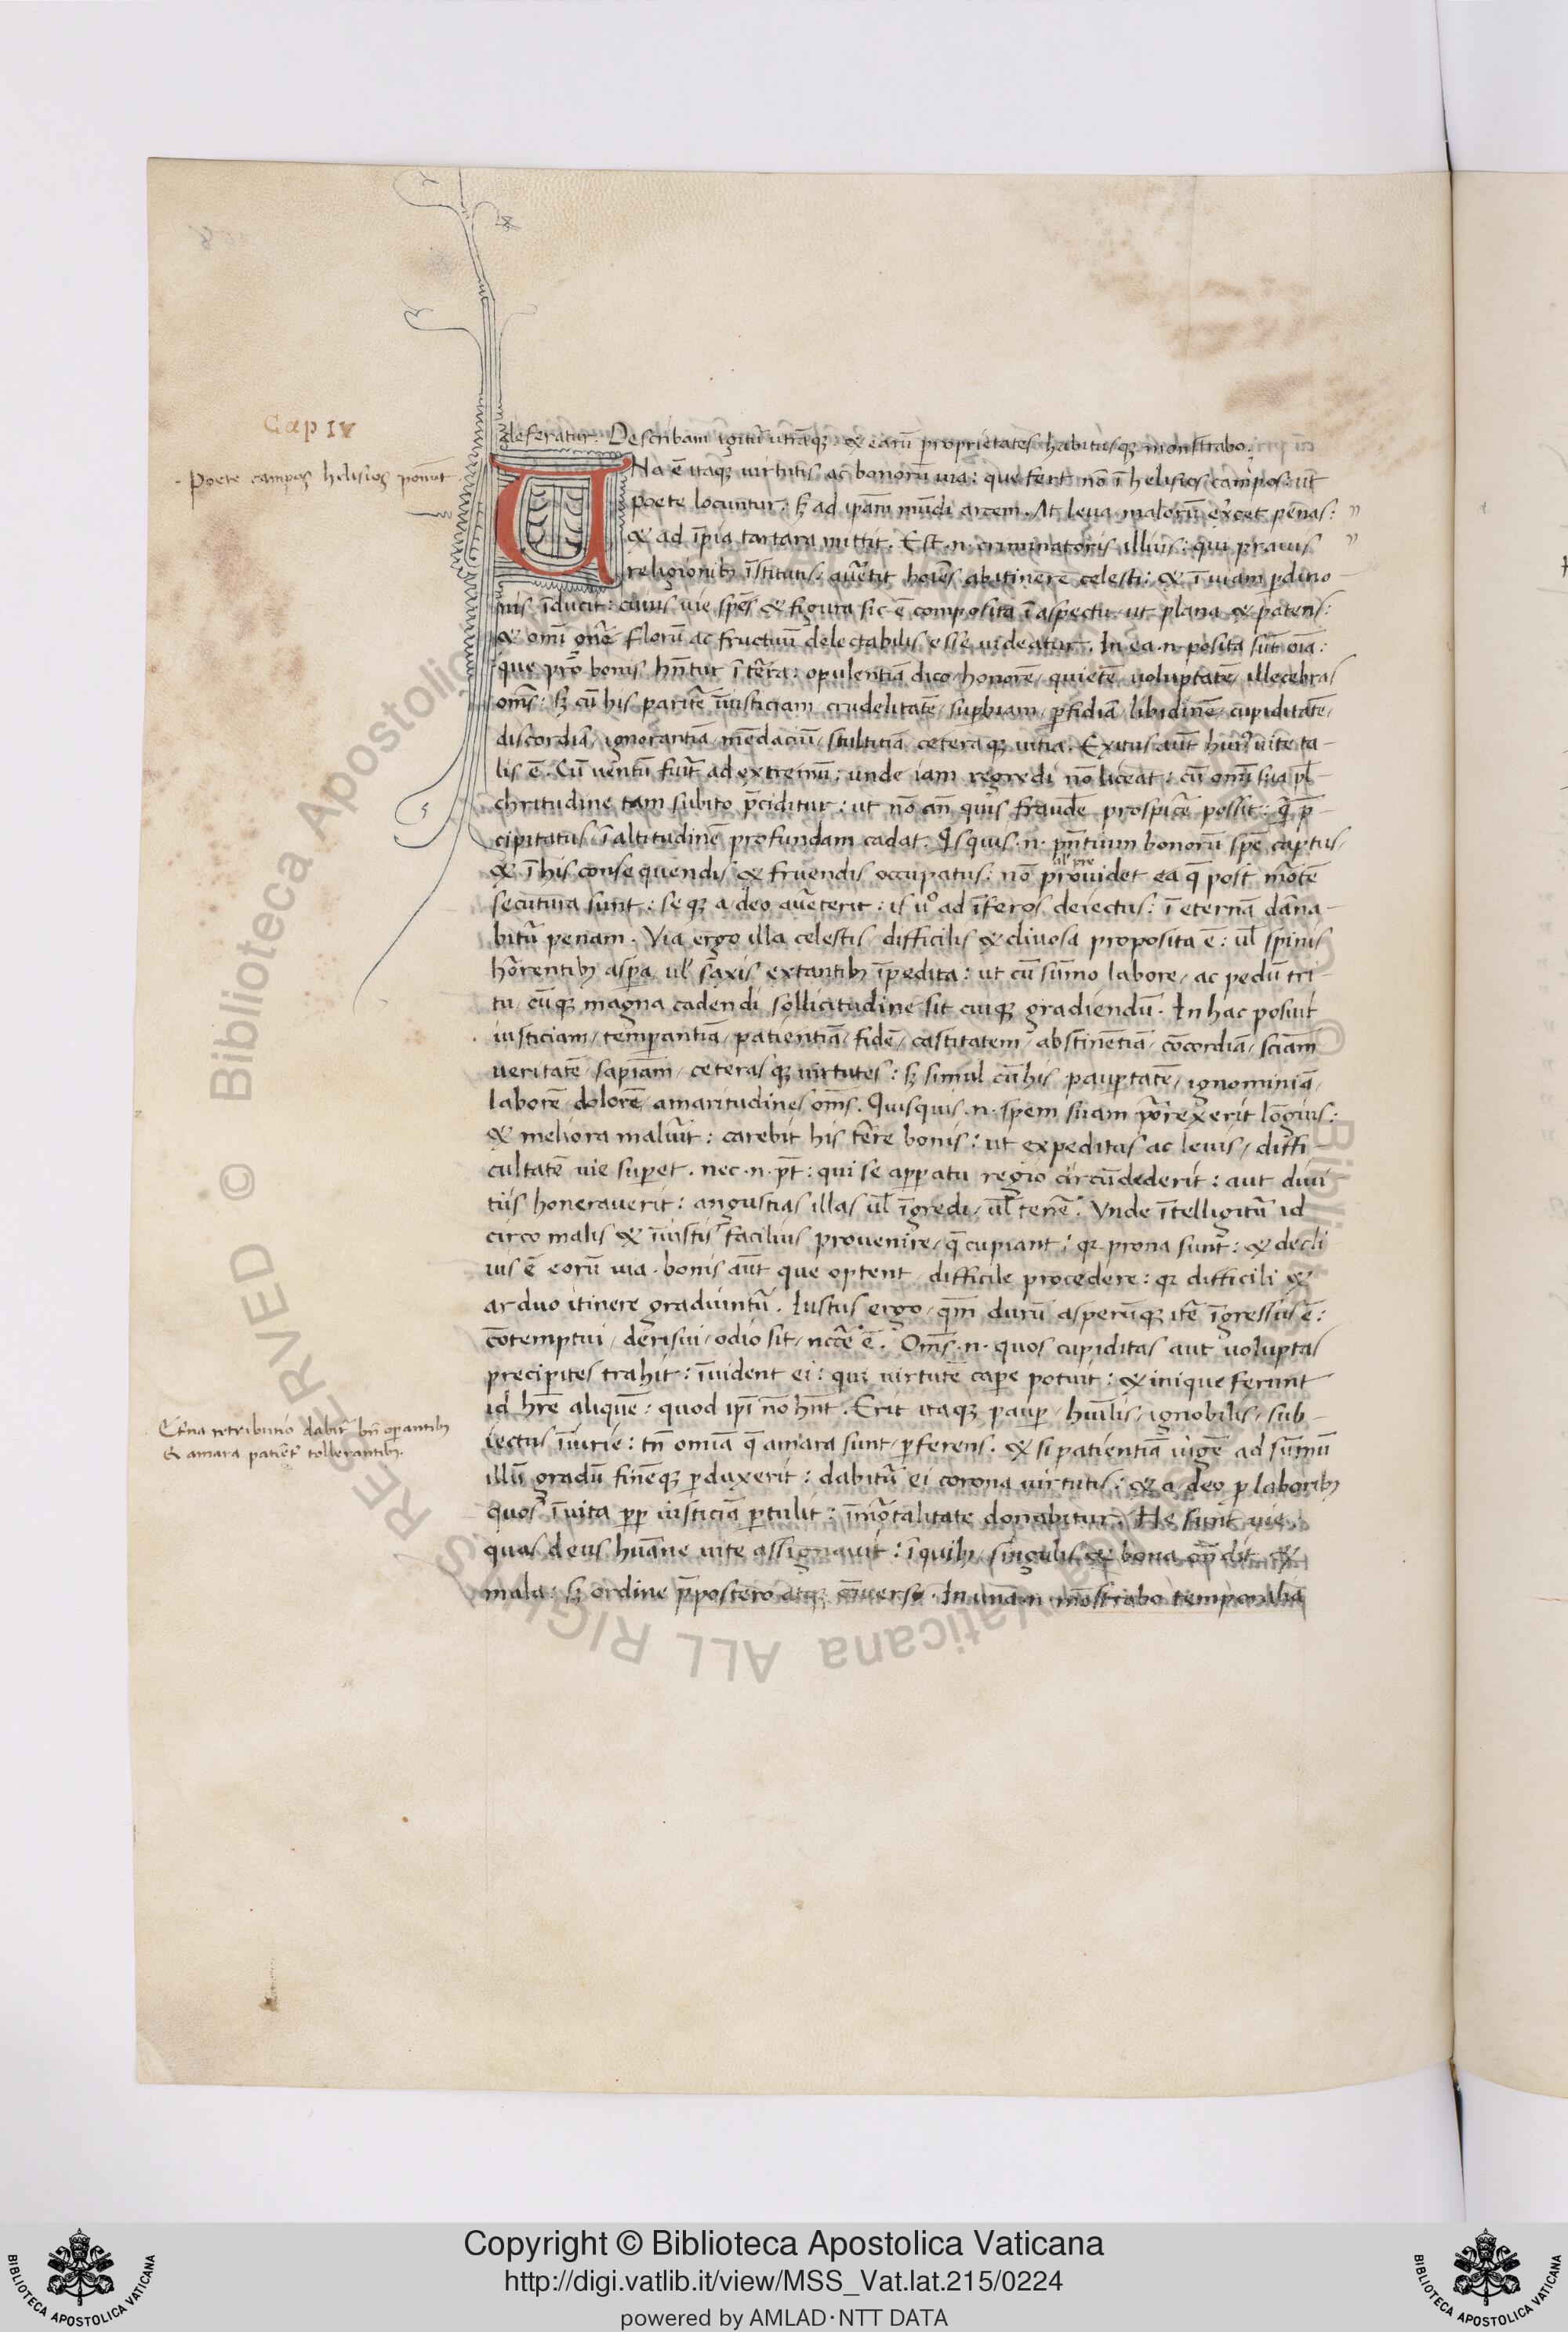 Cap IV
deferatur. Describam igitũ utrãq; & earũ proprietates habitusq; monstrabo.
UNa ẽ itaq; uirtutis ac bonorũ uia: que fert nõ ĩ helisios campos ut
Poete campos helisios ponũt
poete locuntur: sꝫ ad ipãm mũdi arcem. At leua malorũ exercet penas:
& ad ĩpia tartara mittit. Est .n. criminatoris illius: qui prauis
religionibꝫ ĩstitutis auertit hoĩes abitinere celesti: & ĩ uiam ꝑditio
nis ĩducit: cuius uie spẽs & figura sic ẽ composita ĩ aspectu ut plana & patens:
& omĩ gñe florũ ac fructuũ delectabilis esse uideatur. In ea .n. posita sũt oĩa:
que pro bonis hñtur ĩ tẽra: opulentiã dico / honorẽ / quietẽ uoluptatẽ / illecebras
omẽs: sꝫ cũ his paritẽ ĩiusticiam crudelitatẽ / suꝑbiam / ꝑfidiã / libidinẽ / cupiditatẽ /
discordiã / ignorantiã / mẽdaciũ / stultitiã / ceteraq; uitia. Exitus aũt huiꝰ uite ta-
lis ẽ. Cũ uẽntũ fuĩt ad extremũ: unde iam regredi nõ liceat: cũ omĩ sua pl-
chritudine tam subito p̃ciditur: ut nõ añ quis fraudẽ prospicẽ possit: q̃ p̃-
cipitatus ĩ altitudinẽ profundam cadat. Qisquis .n. p̃ntium bonorũ spẽ captus /
& ĩ his consequendis & fruendis occupatus: nõ prouidet ea q̃ post mortẽ
ul' pre
secutura sunt: seq; a deo auerterit: is uº ad ĩferos deiectus: ĩ eternã dãna-
bitũ penam. Via ergo illa celestis / difficilis & cliuosa proposita ẽ: ul' spinis
horrentibꝫ aspa / ul' saxis extantibꝫ ĩpedita: ut cũ sũmo labore / ac pedũ tri-
tu / cũq; magna cadendi sollicitudine sit cuiq; gradiendũ. In hac posuit
iusticiam / temperantiã / patientiã / fidẽ / castitatem / abstinẽtiã / cõcordiã / sciãm
ueritatẽ / sapiãm / ceterasq; uirtutes: sꝫ simul cũ his pauꝑtatẽ / ignominiã /
laborẽ / dolorẽ / amaritudines omẽs. Quisquis .n. spem suam porrexerit lõgius:
& meliora maluĩt: carebit his tẽre bonis: ut expeditus ac leuis / diffi
cultatẽ uie suꝑet. nec .n. pt̃: qui se apparatu regio circũdederit: aut diui
tiis honerauerit: angustias illas ul' ĩgredi / ul' tenẽ. Vnde ĩtelligitũ id
circo malis & ĩiustis facilius prouenire / q̃ cupiant: qꝛ prona sunt: & decli
uis ẽ eorũ uia. bonis aũt que optent difficile procedere: qꝛ difficili &
arduo itinere gradiuntũ. Iustus ergo / qm̃ durũ asperũq; itẽ ĩgressus ẽ:
cõtemptui / derisui / odio sit / nccẽ ẽ. Omẽs .n. quos cupiditas aut uoluptas
precipites trahit: ĩuident ei: qui uirtutẽ capere potuit: & inique ferunt
id hr̃e aliquẽ: quod ipĩ nõ hñt. Erit itaq; pauꝑ / huĩlis / ignobilis / sub-
Et̃na retributio dabit̃ bñ operantibꝫ
& amara patiẽt' tollerantibꝫ.
iectus ĩiurie: tñ omĩa q̃ amara sunt / ꝑferens. & si patientiã iugẽ ad sũmũ
illũ gradũ finẽq; ꝑduxerit: dabitũ ei corona uirtutis: & a deo ꝑ laboribꝫ
quos ĩ uita ꝓp iusticiã ꝑtulit: ĩmortalitate donabitur. He sunt uie
quas deus huãne uite assignauit: ĩ quibꝫ singulis & bona oñdit &
mala: sꝫ ordine p̃postero atq; cõuerso. In unã .n. mõstrabo temporalia
Copyright © Biblioteca Apostolica Vaticana
http://digi.vatlib.it/view/MSS_Vat.lat.215/0224
powered by AMLAD·NTT DATA
BIBLIOTECA APOSTOLICA VATICANA
BIBLIOTECA APOSTOLICA VATICANA
© Biblioteca Apostolica Vaticana ALL RIGHTS RESERVED